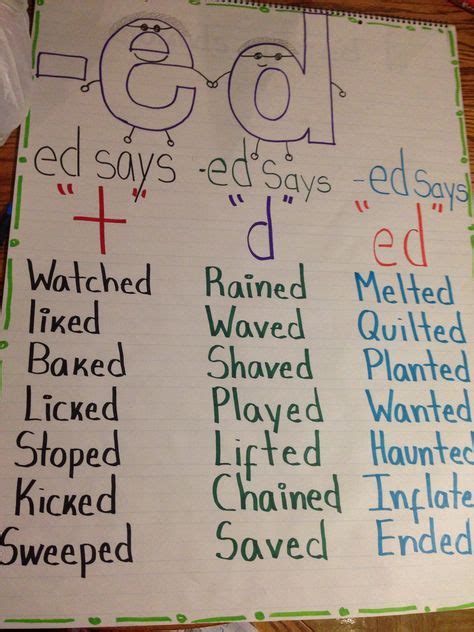 -ed
ed says -ed says -ed says
"t" "d" "ed"
Watched Rained Melted
liked Waved Quilted
Baked Shaved Planted
Licked Played Wanted
Stoped Lifted Haunted
Kicked Chained Inflate
Sweeped Saved Ended